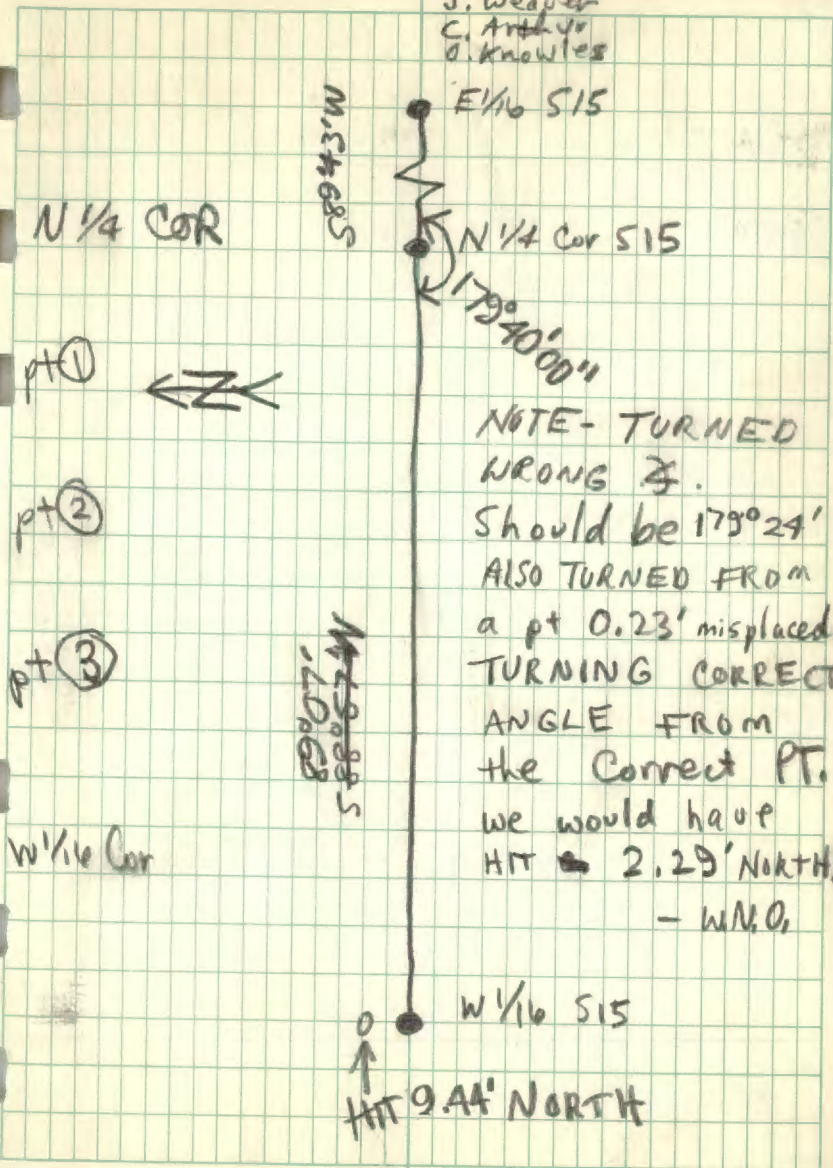 J. Weaver
C. Arthur
O. Knowles
E 1/16 S15
S89°43'W
N 1/4 COR
N 1/4 Cor S15
179°40'00"
pt ①
N
NOTE - TURNED
WRONG ∡.
pt ②
Should be 179°24'
ALSO TURNED FROM
a pt 0.23' misplaced
pt ③
TURNING CORRECT
ANGLE FROM
the Correct PT.
we would have
W 1/16 Cor
HIT 2.29' NORTH.
- W.N.O.
89°07'
W 1/16 S15
HIT 9.44' NORTH